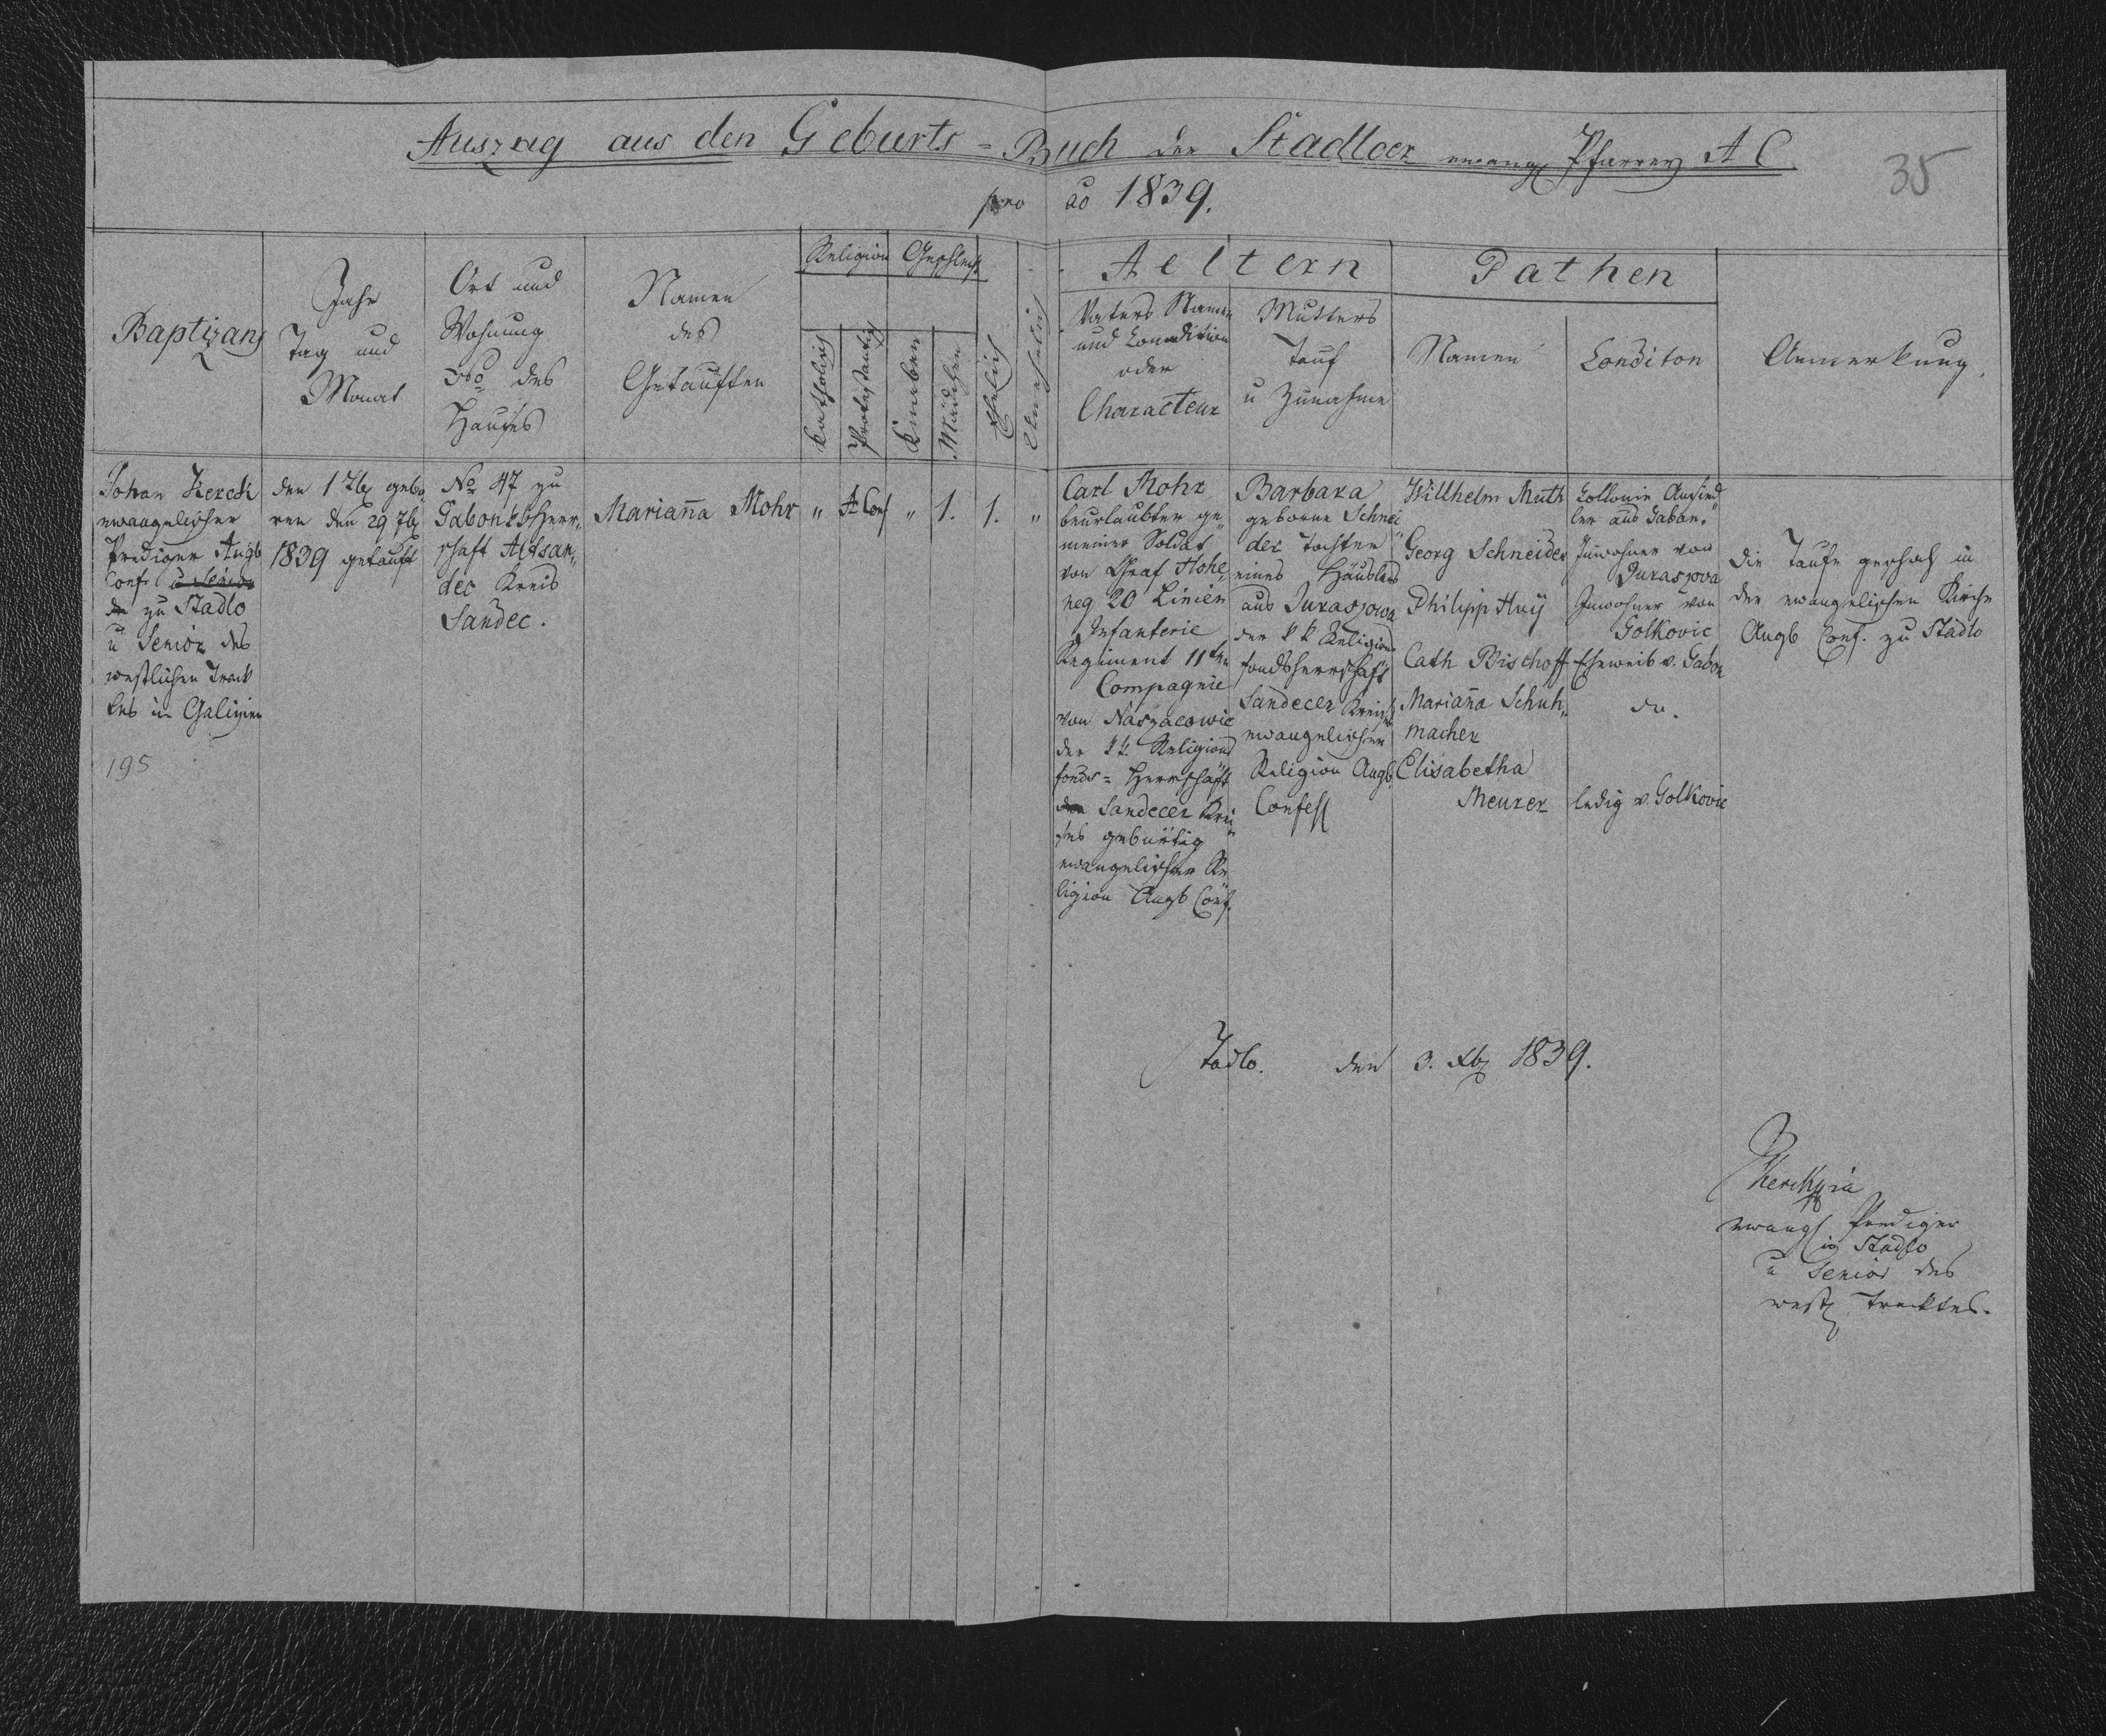 Auszug aus den Geburts = Buch der Stadloer evang Pfarrey A C
35
pro ao 1839.
Baptizans
Jahr
Tag und
Monat
Ort und
Wohnung
No des
Hauses
Namen
des
Getauften
Religion
Katholisch
Protestantisch
Geschlecht
Knaben
Mädchen
Ehelich
Unehelich
Aeltern
Vaters Namen
und Condition
oder
Characteur
Mutters
Tauf
u Zunahme
Pathen
Namen
Conditon
Anmerkung.
Johan
evangelischer
Prediger Augb
Conf. u Senior
zu Stadlo
u Senior des
westlichen Track
tes in Galizien
195
den 1 7b gebo„
ren den 29 7b
1839 getauft
No 47 zu
Gabon Herr„
schaft Altsan„
dec Kreis
Sandec.
Mariaña Mohr
„
A Conf
„
1.
1.
„
Carl Mohr
beurlaubter ge„
meiner Soldat
von Graf Hohe„
neg 20 Linien
Infanterie
Regiment 11ten
Compagnie
von Naszacowic
der kk. Religions
fonds = Herrschaft
Sandecer Krei„
ses gebürtig
evangelischer Re
ligion Augb Conf.
Barbara
geborne Schnei„
der Tochter
eines Häuslers
aus Jurasjowa
der kk Religions
fondsherrschaft
Sandecer Kreises
evangelischen
Religion Augb.
Confess
Willhelm Muth
Georg Schneider
Philipp Huÿ
Cath Bischoff
Mariaña Schuh„
macher
Elisabetha
Meurer
Collonie Ansied
ler aus Gabon.
Inwohner von
Jurasjova
Inwohner von
Golkovic
Eheweib v. Gabon
do.
ledig v. Golkovic
Die Taufe geschah in
der evangelischen Kirche
Augb Conf. zu Stadlo
Stadlo. den 3. Xb 1839.
evangl Prediger
in Stadlo
u Senior des
westl Tracktes.